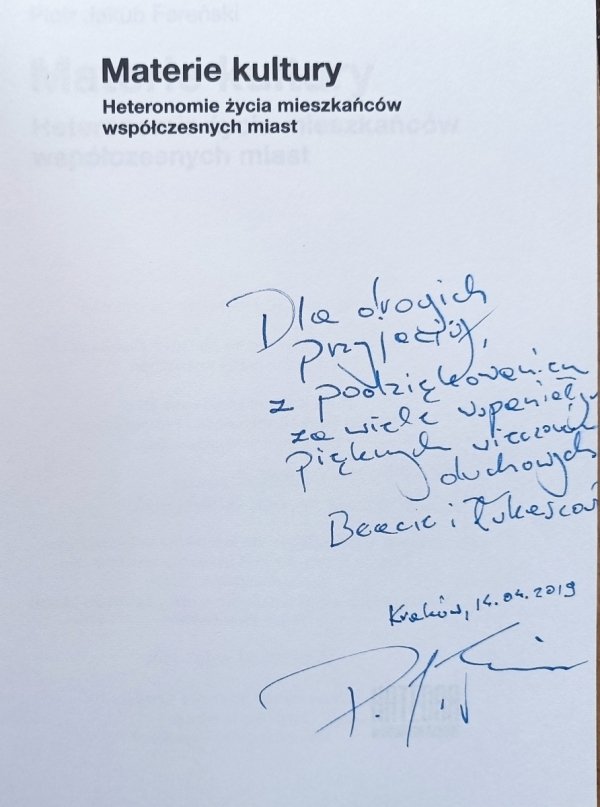 Materie kultury
Heteronomie życia mieszkańców
współczesnych miast
Dla drogich
Przyjaciół,
z podziękowaniem
za wiele wspaniałych
pięknych wieczorów
duchowych
Beacie i Łukaszowi
Kraków, 14.04.2019